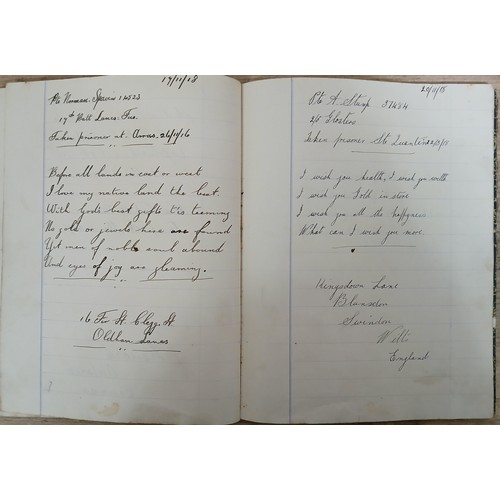 19/11/18
Pte Norman Spavin 14523
17th Batt Lancs. Fus.
Taken prisoner at 26/11/16
Before all lands in east or west
I love my native land the best
With God's best gifts t'is teeming
No gold or jewels here are found
Yet men of noble soul abound
And eyes of joy are gleaming.
16 St. Clegg. St
Oldham Lancs
20/11/18
Pte A. Stump 37494
2/5 Glosters
Taken prisoner St Quentin
I wish you health, I wish you wealth
I wish you Gold in store
I wish you all the happyness
What can I wish you more.
Kingsdown Lane
Blunsdon
Swindon
Wilts
England